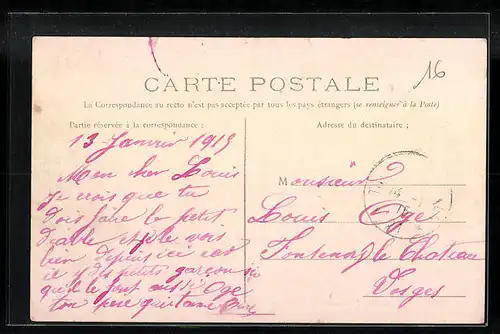 16
CARTE POSTALE
La Correspondance au recto n'est pas acceptée par tous les pays étrangers (se renseigner à la Poste)
Partie réservée à la correspondance :
Adresse du destinataire ;
13 Janvier 1915
Mon cher Louis
Je crois que tu
dois faire le petit
diable et je le vois
bien depuis ici car
il y des petits garçon
qui le font aussi
ton pere qui t'aime
Monsieur
Louis Ogé
Fontenoy le Chateau
Vosges